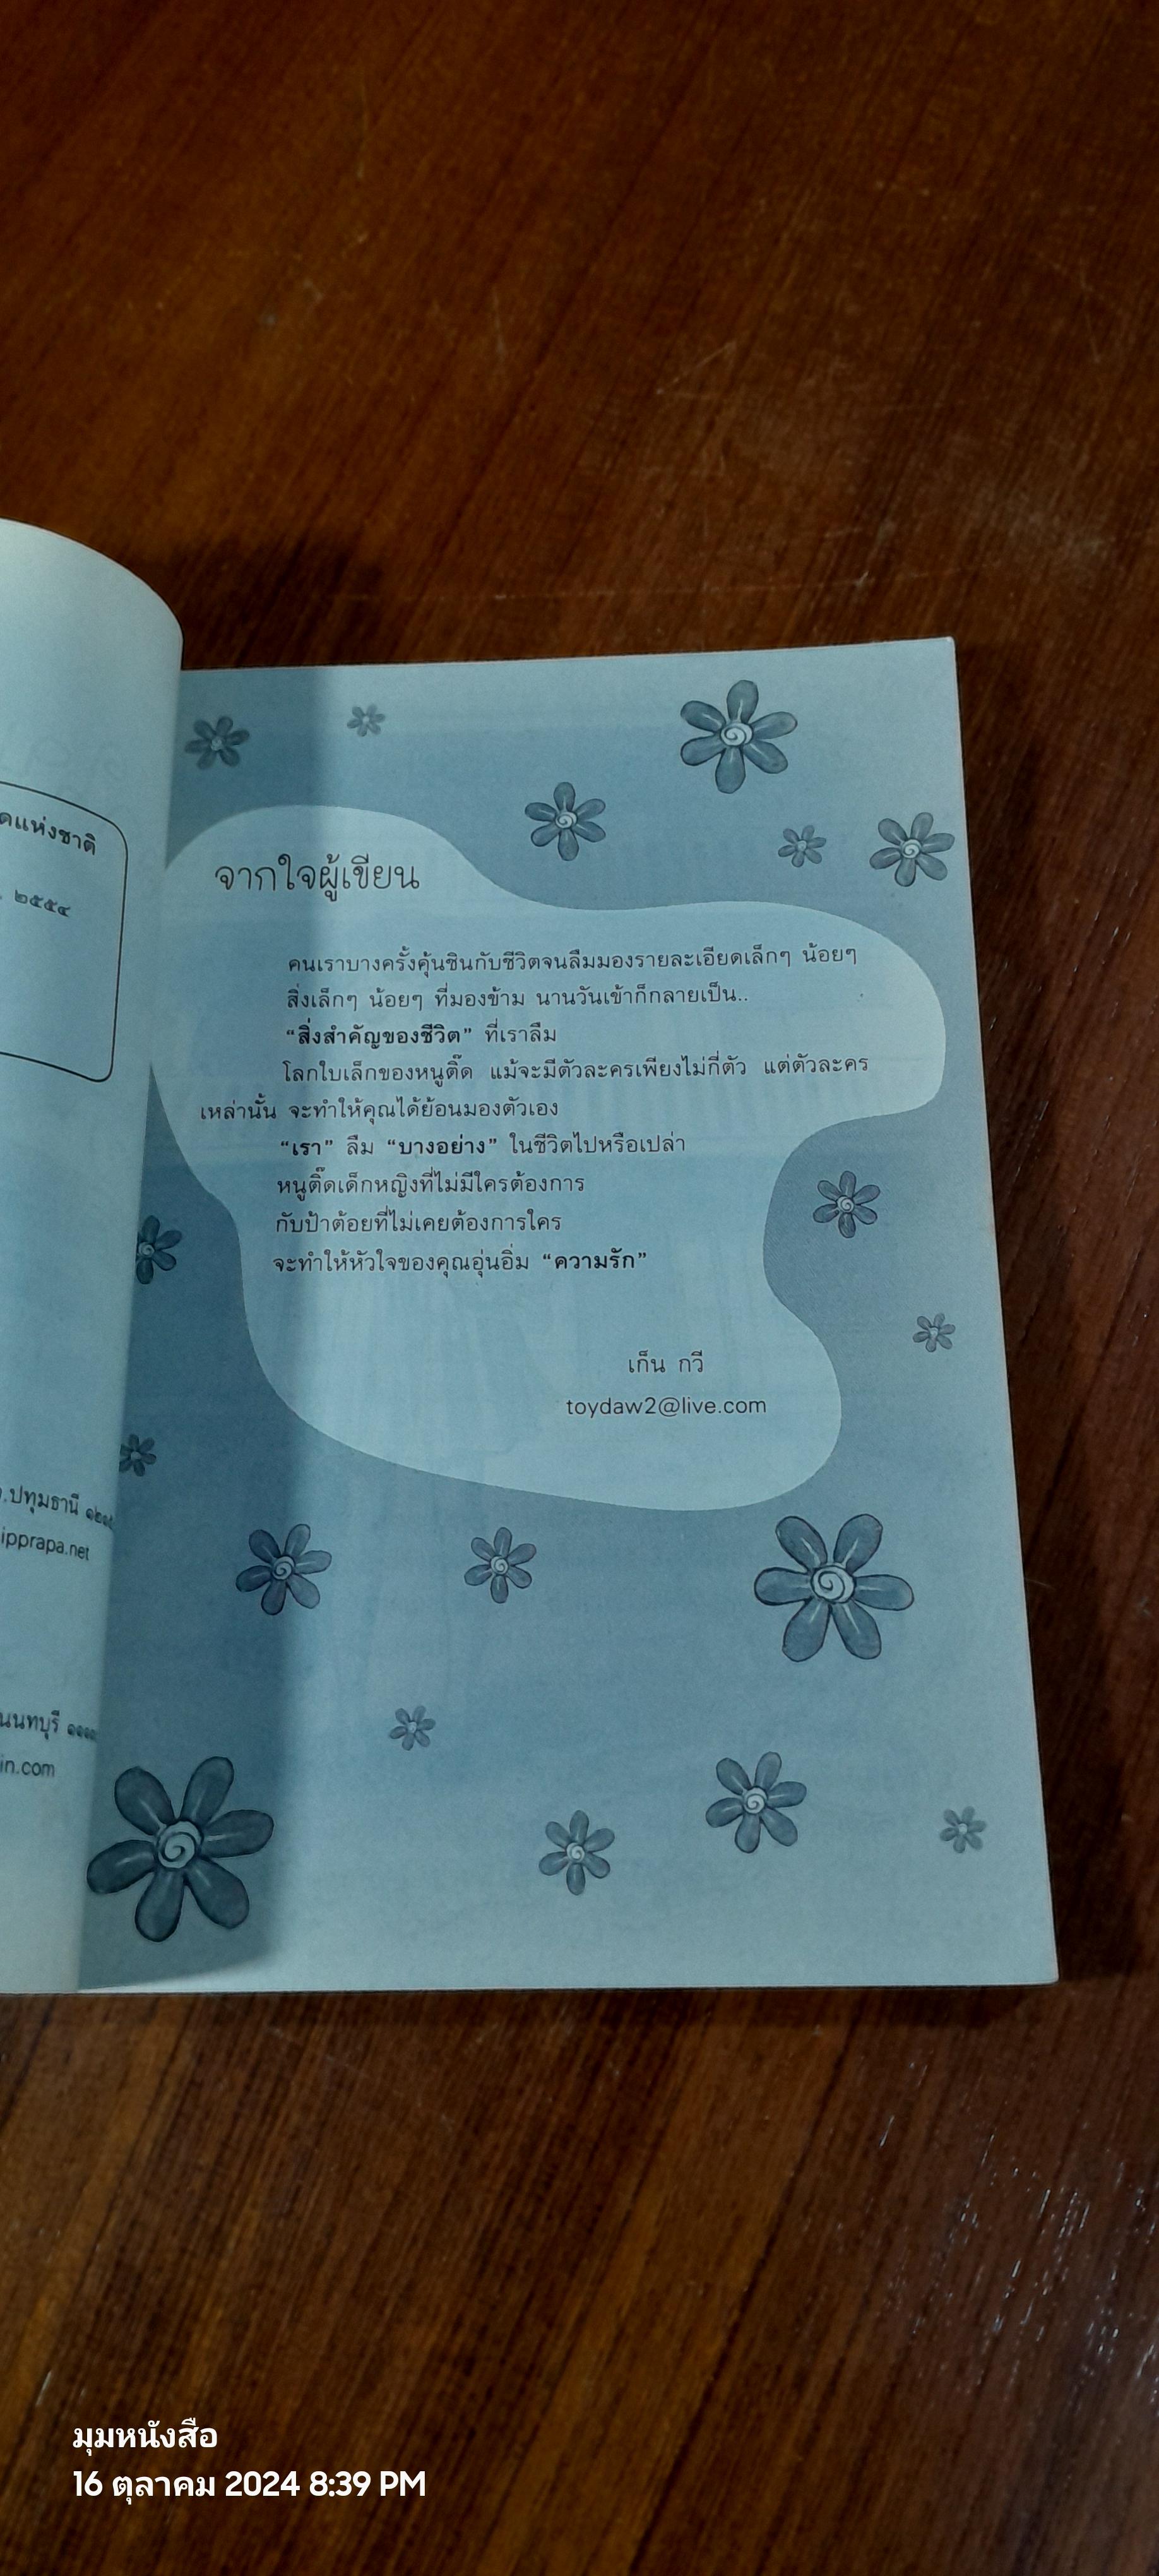 ดแห่งชาติ
๒๕๕๔
.ปทุมธานี
ipprapa.net
นนทบุรี
in.com
จากใจผู้เขียน
คนเราบางครั้งคุ้นชินกับชีวิตจนลืมมองรายละเอียดเล็กๆ น้อยๆ
สิ่งเล็กๆ น้อยๆ ที่มองข้าม นานวันเข้าก็กลายเป็น..
“สิ่งสำคัญของชีวิต” ที่เราลืม
โลกใบเล็กของหนูติ๊ด แม้จะมีตัวละครเพียงไม่กี่ตัว แต่ตัวละคร
เหล่านั้น จะทำให้คุณได้ย้อนมองตัวเอง
“เรา” ลืม “บางอย่าง” ในชีวิตไปหรือเปล่า
หนูติ๊ดเด็กหญิงที่ไม่มีใครต้องการ
กับป้าต้อยที่ไม่เคยต้องการใคร
จะทำให้หัวใจของคุณอุ่นอิ่ม “ความรัก”
เก็น กวี
toydaw2@live.com
มุมหนังสือ
16 ตุลาคม 2024 8:39 PM